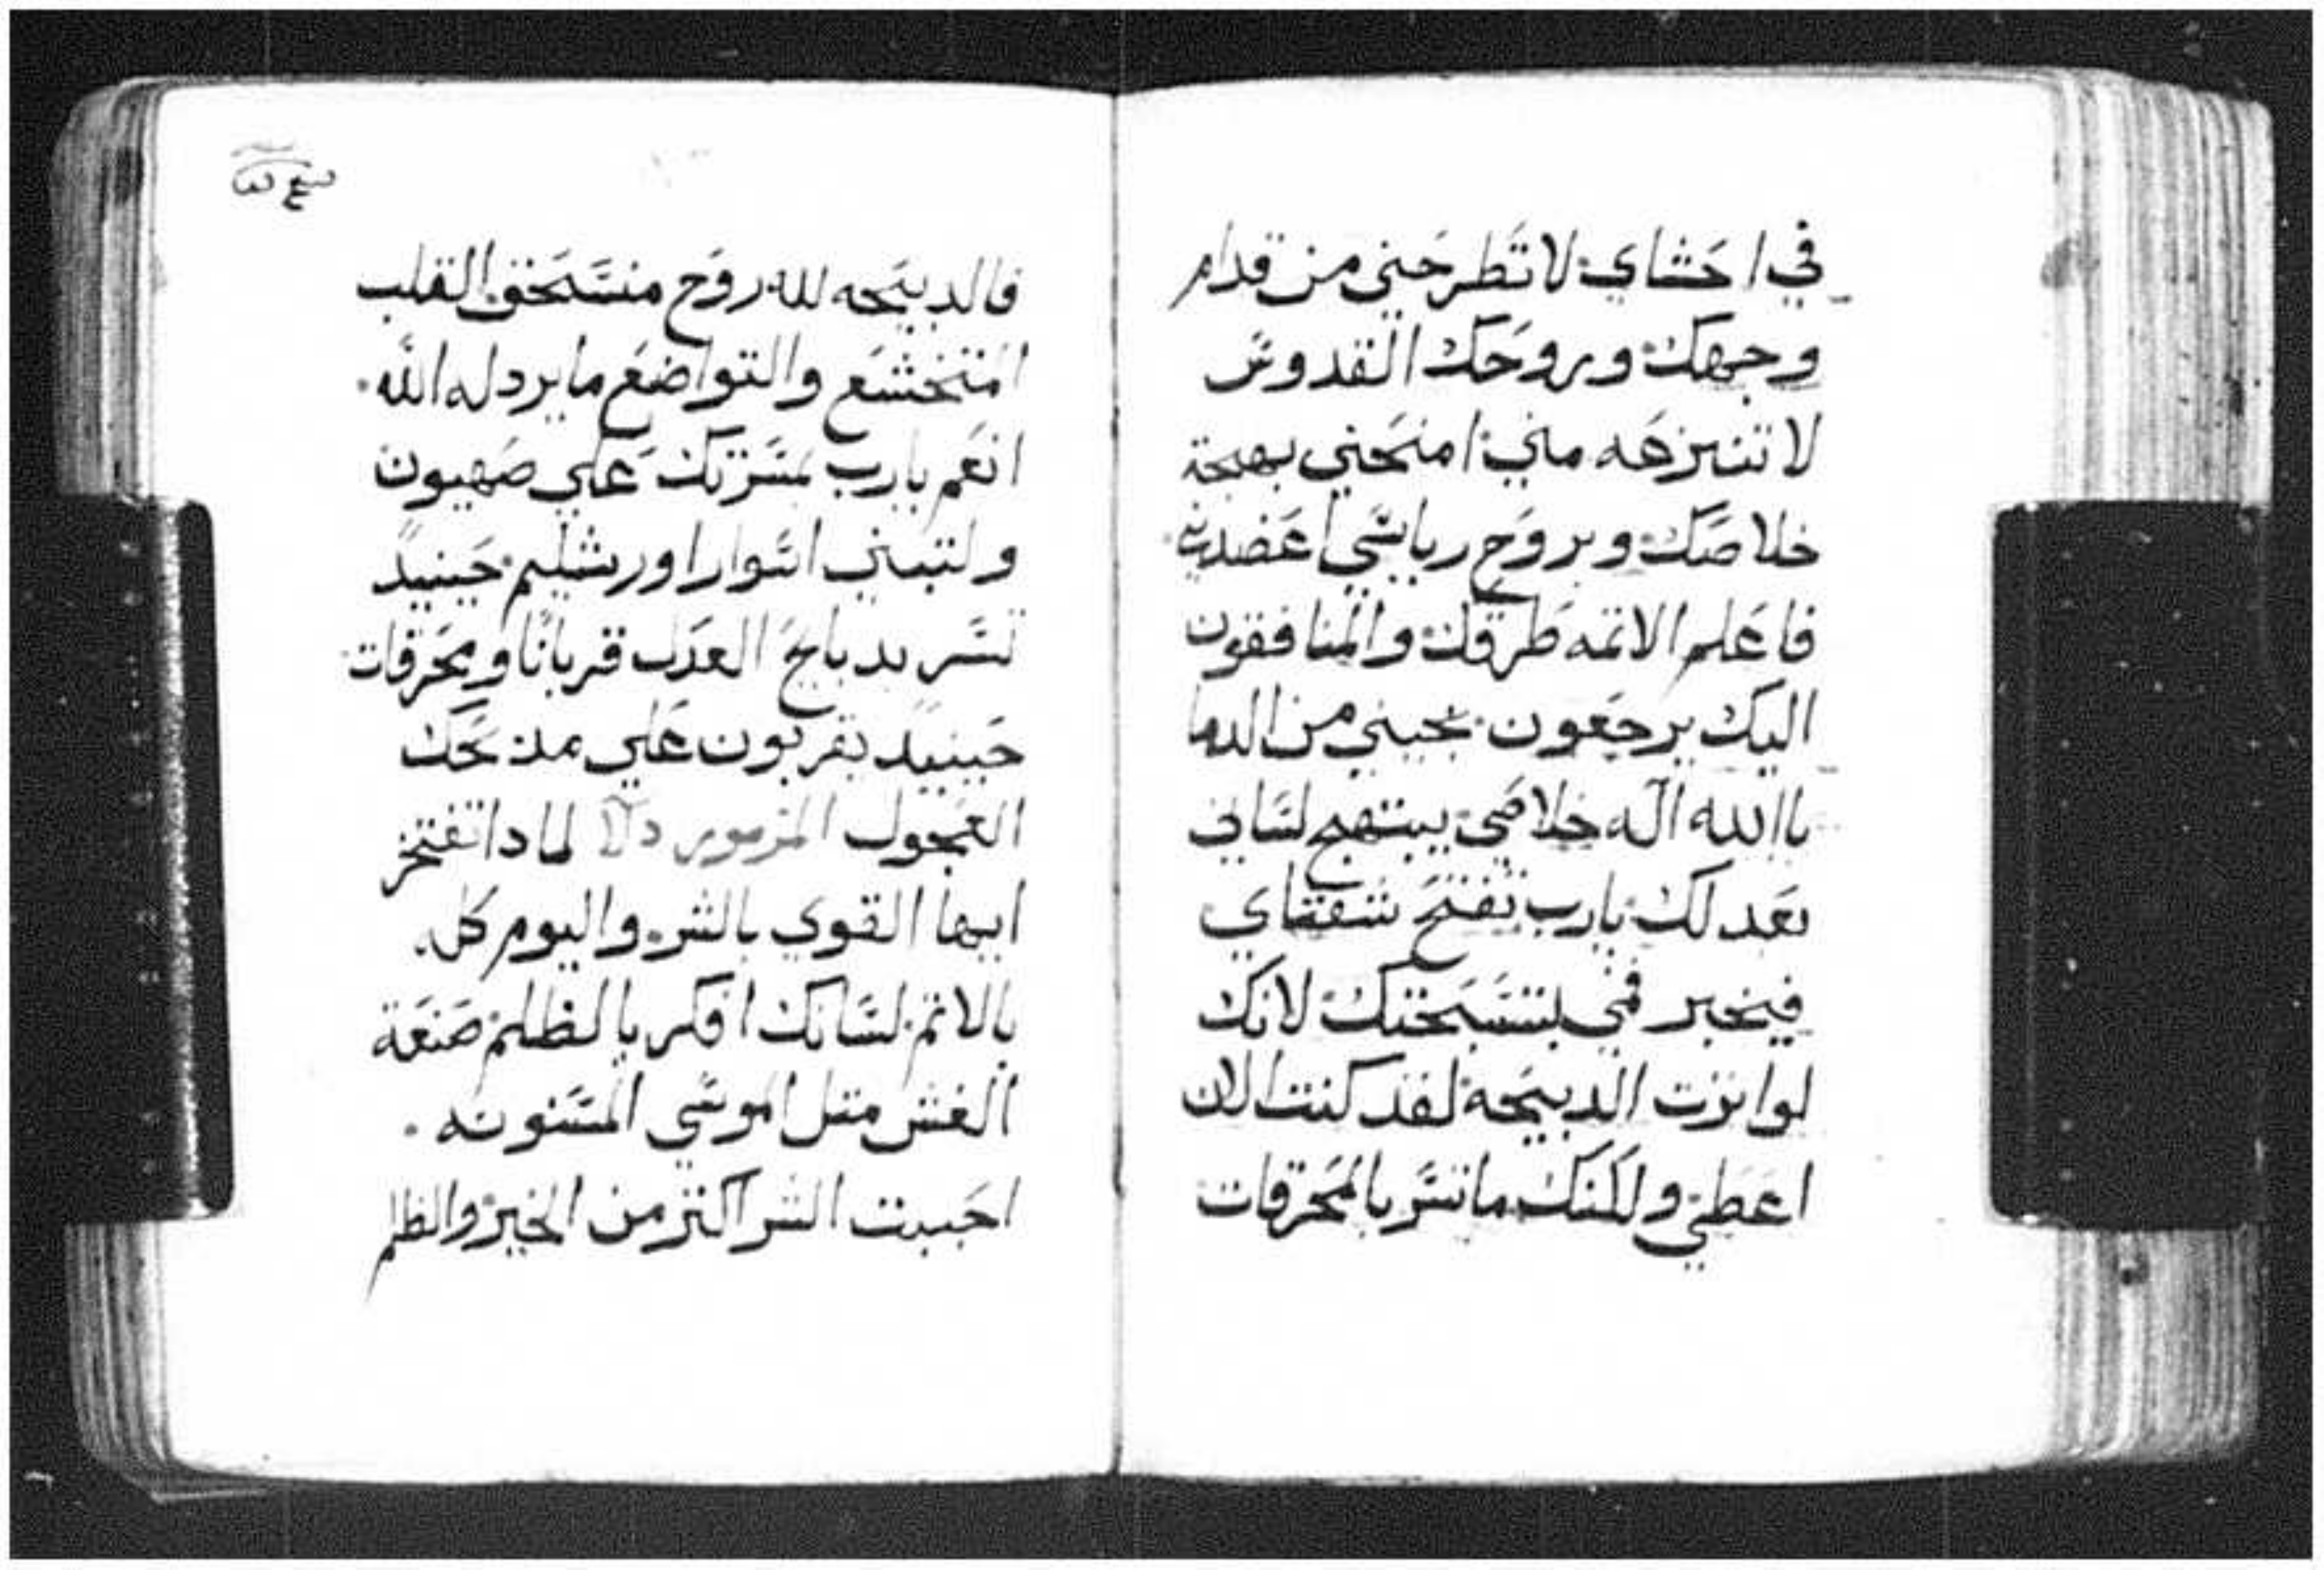 في احشاي لا تطرحني من قدام
وجهك وروحك القدوس
لا تنزعه مني امنحني بهجة
خلاصك وبروح رياسي اعضدني
فاعلم الاثمه طرقك والمنافقون
اليك يرجعون نجيني من الدما
ياالله اله خلاصي يبتهج لساني
بعدلك يارب تفتح شفتاي
فيخبر فمي بتسبحتك لانك
لو اثرت الدبيحه لقد كنت الان
اعطي ولكنك ما تسر بالمحرقات
فالدبيحه لله روح منسحق القلب
المتخشع والتواضع ما يردله الله.
انعم يارب بمسرتك علي صهيون
ولتبني اسوار اورشليم حينيد
تسر بدبايح العدل قربانا ومحرقات
حينيد يقربون علي مدبحك
العجول المزمور لمادا تفتخر
ايها القوي بالشر واليوم كل.
بالاثم لسانك افكر بالظلم صنعة
الغش متل الموسي المسنونه.
احببت الشر اكتر من الخير والظلم